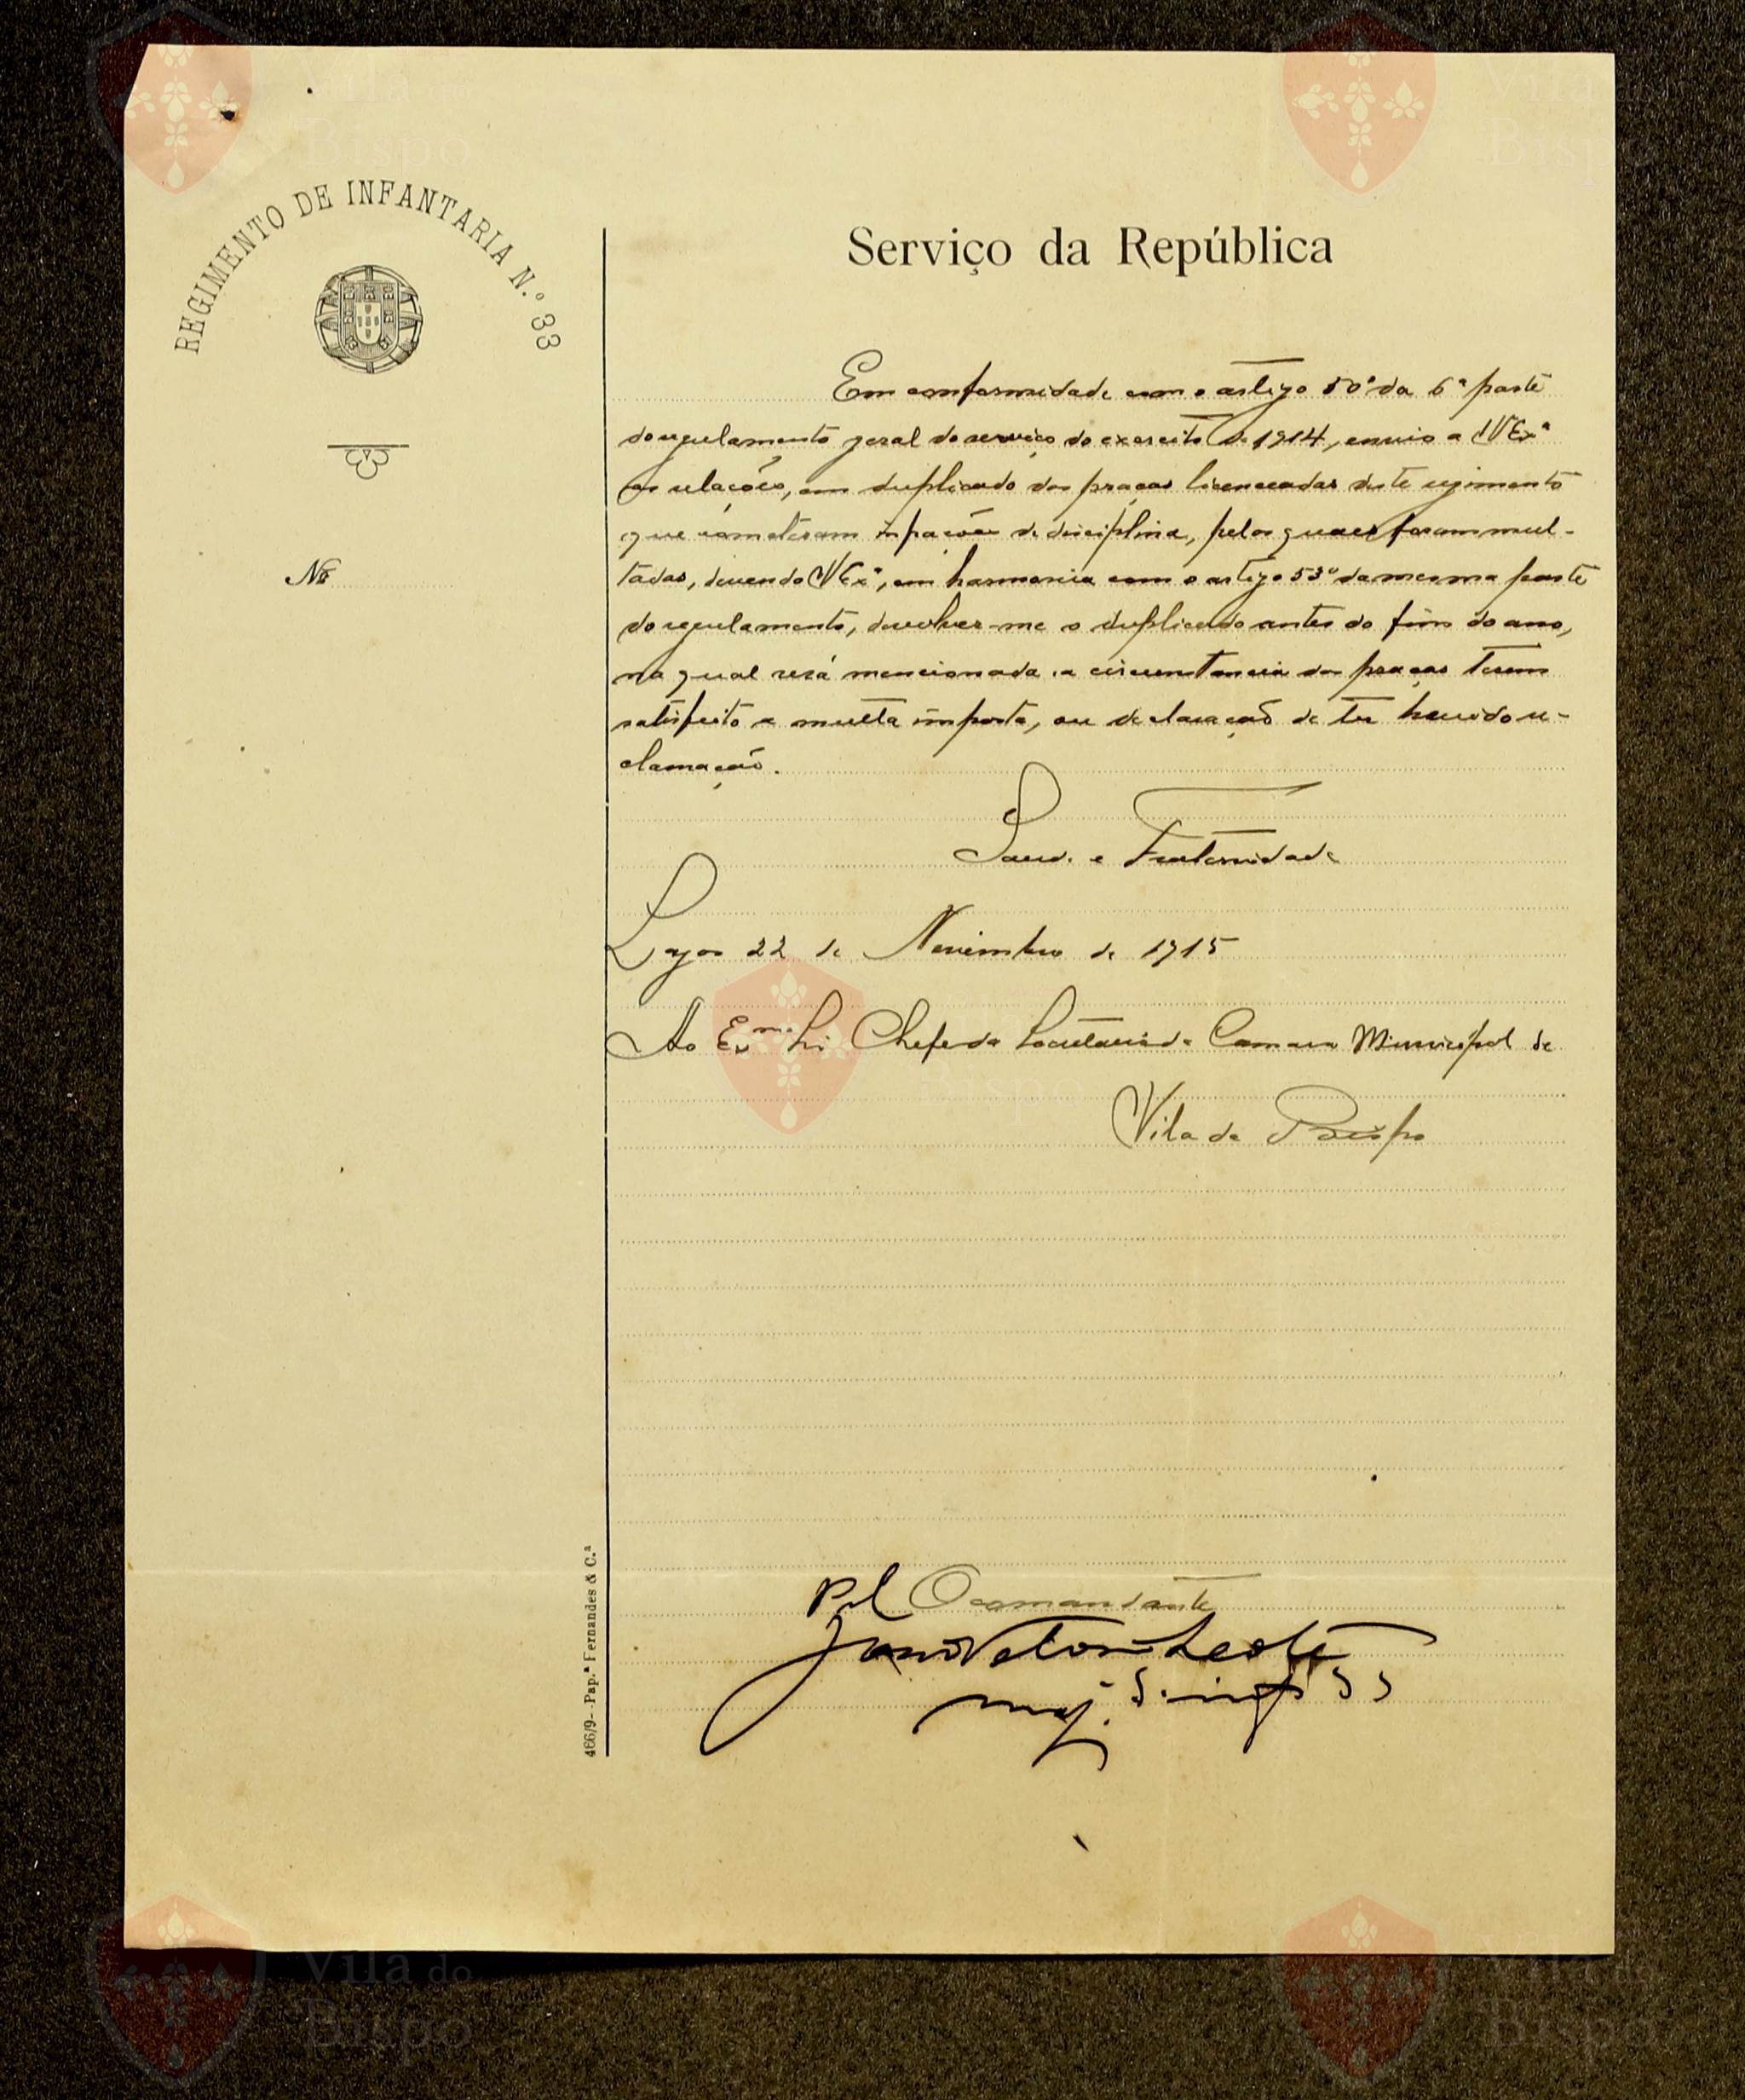 REGIMENTO DE INFANTARIA N.º 33
Nº
Serviço da República
Em conformidade com o artigo 50º da 6ª parte
do regulamento geral do serviço do exercito de 1914, envio a V Exª
as relações, em duplicado das praças licenceadas deste regimento
que cometeram infrações de disciplina, pelas quaes foram mul-
tadas, devendo V Exª, em harmonia com o artigo 53º da mesma parte
do regulamento, devolver-me o duplicado antes do fim do ano,
no qual será mencionada a circunstancia das praças terem
satisfeito a multa imposta, ou declaração de ter havido re-
clamação.
Saude e Fraternidade
Lagos 22 de Novembro de 1915
Ao Exmo Sr Chefe da Secretaria da Camara Municipal de
Vila do Bispo
Pel O comandante
Leote
maj. inf 33
466/9- Pap.ª Fernandes & C.ª
Vila do
Bispo
Vila do
Bispo
Bispo
Vila do
Bispo
Vila do
Bispo